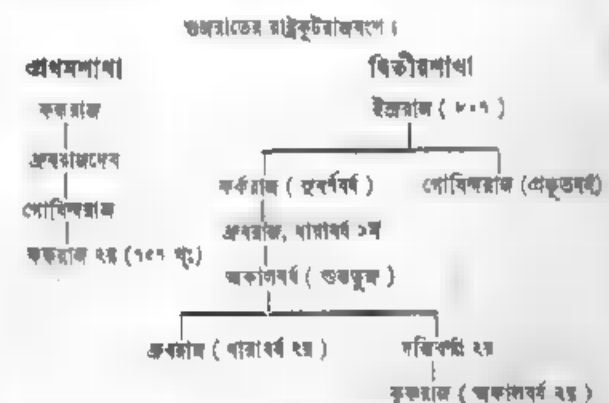 গুজরাতের রাষ্ট্রকূটরাজবংশ।
প্রথমশাখা
কক্করাজ
ধ্রুবরাজদেব
গোবিন্দরাজ
কক্করাজ ২য় (৭৫৭ খৃঃ)
দ্বিতীয়শাখা
ইন্দ্ররাজ ( ৮০৭ )
কর্করাজ ( সুবর্ণবর্ষ ) গোবিন্দরাজ (প্রভূতবর্ষ)
ধ্রুবরাজ, ধারাবর্ষ ১ম
অকালবর্ষ ( শুভতুঙ্গ )
ধ্রুবরাজ ( ধারাবর্ষ ২য় ) দন্তিবর্ম্মা ২য়
কৃষ্ণরাজ ( অকালবর্ষ ২য় )